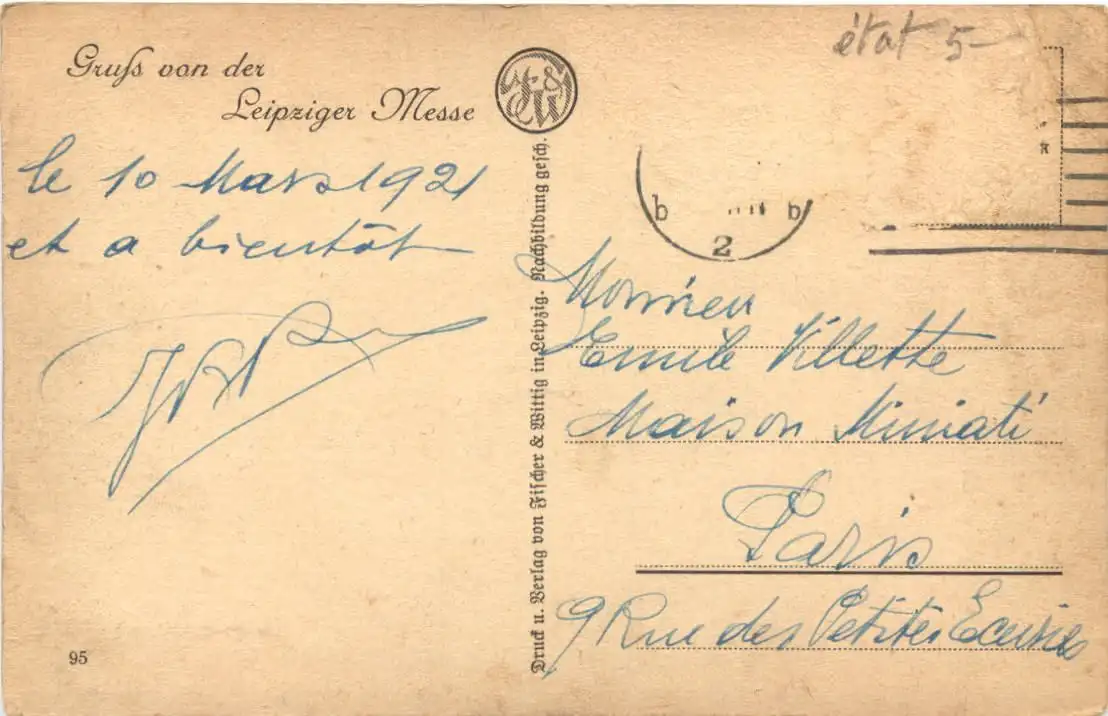 Gruß von der
Leipziger Messe
le 10 Mars 1921
et a bientôt
95
F & W
Druck u. Verlag von Fischer & Wittig in Leipzig. Nachbildung gesch.
état 5-
b b
2
*
Monsieur
Emile Villette
Maison
Paris
9 Rue des Petites Ecuries